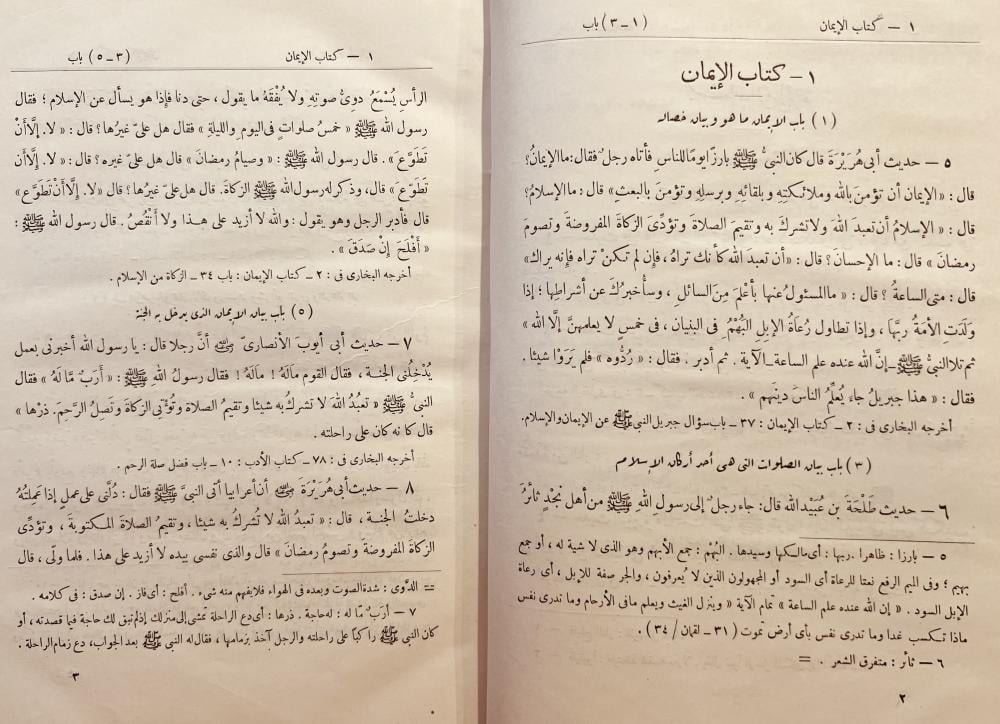 ١ – كتاب الإيمان (١ – ٣) باب
١ – كتاب الإيمان
(١) باب الإيمان ما هو وبيان خصاله
٥ – حديث أبى هُرَيْرَةَ قال كان النبىُّ ﷺ بارزًا يومًا للناسِ فأتاه رجلٌ فقال: ما الإيمانُ؟
قال: «الإيمان أن تؤمنَ بالله وملائكتِهِ وبلقائِهِ وبرسلِهِ وتؤمنَ بالبعثِ» قال: ما الإسلامُ؟
قال: «الإسلامُ أن تعبدَ اللهَ ولا تشركَ به وتقيمَ الصلاةَ وتؤدِّىَ الزكاةَ المفروضةَ وتصومَ
رمضانَ» قال: ما الإحسانُ؟ قال: «أن تعبدَ الله كأنك تراهُ، فإن لم تكنْ تراه فإنه يراك»
قال: متى الساعةُ؟ قال: «ما المسئولُ عنها بأعْلَمَ مِنَ السائلِ، وسأُخبرُكَ عن أشراطِها؛ إذا
وَلَدَتِ الأمَةُ ربَّها، وإذا تطاولَ رُعَاةُ الإبلِ البُهْمُ فى البنيان، فى خمسٍ لا يعلمهنَّ إلَّا الله»
ثم تلا النبىُّ ﷺ – إنَّ الله عنده علم الساعة – الآية. ثم أدبر. فقال: «رُدُّوه» فلم يَرَوْا شيئا.
فقال: «هذا جبريلُ جاء يُعلِّمُ الناسَ دينَهم».
أخرجه البخارى فى: ٢ – كتاب الإيمان: ٣٧ – باب سؤال جبريل النبى ﷺ عن الإيمان والإسلام.
(٣) باب بيان الصلوات التى هى أحد أركان الإسلام
٦ – حديث طَلْحَةَ بن عُبَيْد الله قال: جاء رجلٌ إلى رسولِ اللهِ ﷺ من أهل نَجْدٍ ثائرُ
٥ – بارزا: ظاهرا. ربها: أى مالكها وسيدها. البُهْم: جمع الأبهم وهو الذى لا شية له، أو جمع
بهيم؛ وفى الميم الرفع نعتا للرعاة أى السود أو المجهولون الذين لا يُعرفون، والجر صفة للإبل، أى رعاة
الإبل السود. «إن الله عنده علم الساعة» تمام الآية «وينزل الغيث ويعلم مافى الأرحام وما تدرى نفس
ماذا تكسب غدا وما تدرى نفس بأى أرض تموت (٣١ – لقمان / ٣٤).
٦ – ثائر: متفرق الشعر. =
٢
١ – كتاب الإيمان (٣ – ٥) باب
الرأسِ يُسْمَعُ دوىُّ صوتِهِ ولا يُفْقَهُ ما يقول، حتى دنا فإذا هو يسأل عن الإسلام؛ فقال
رسول الله ﷺ «خمسُ صلواتٍ فى اليوم والليلةِ» فقال هل علىَّ غيرُها؟ قال: «لا. إلَّا أنْ
تَطَوَّعَ». قال رسول الله ﷺ: «وصيامُ رمضانَ» قال هل علىَّ غيره؟ قال: «لا. إلَّا أن
تَطَوَّعَ» قال، وذكر له رسول الله ﷺ الزكاةَ. قال هل علىَّ غيرُها؟ قال «لا. إلَّا أنْ تَطَوَّعَ»
قال فأدبر الرجل وهو يقول: والله لا أزيد على هذا ولا أنْقُصُ. قال رسول الله ﷺ:
«أَفْلَحَ إنْ صَدَقَ».
أخرجه البخارى فى: ٢ – كتاب الإيمان: باب ٣٤ – الزكاة من الإسلام.
(٥) باب بيان الإيمان الذى يدخل به الجنة
٧ – حديث أبى أيوبَ الأنصارىّ رضي الله عنه أنَّ رجلا قال: يا رسول الله أخبرنى بعمل
يُدْخِلُنى الجنـة، فقال القوم مَالَهُ! مالَهُ! فقال رسولُ الله ﷺ: «أَرَبٌ مَّا لَهُ» فقال
النبىُّ ﷺ «تعبُدُ اللهَ لا تشركُ به شيئا وتقيمُ الصلاة وتُؤْتِى الزكاةَ وتَصِلُ الرَّحِمَ. ذرْها»
قال كانه كان على راحلته.
أخرجه البخارى فى: ٧٨ – كتاب الأدب: ١٠ – باب فضل صلة الرحم.
٨ – حديث أبى هُرَيْرَةَ رضي الله عنه أن أعرابيا أتى النبىَّ ﷺ فقال: دُلَّنى على عملٍ إذا عَمِلتُهُ
دخلتُ الجنـة، قال: «تعبدُ اللهَ لا تُشركُ به شيئا، وتقيمُ الصلاةَ المكتوبةَ، وتؤدِّى
الزكاةَ المفروضةَ وتصومُ رمضانَ» قال والذى نفسى بيده لا أزيد على هذا. فلما ولَّى، قال
= الدَّوى: شدة الصوت وبعده فى الهواء فلا يفهم منه شىء. أفلح: أى فاز. إن صدق: فى كلامه.
٧ – أرَبٌ مَّا له: له حاجة. ذرها: أى دع الراحلة تمشى إلى منزلك إذ لم تبق لك حاجة فيما قصدته، أو
كان النبى ﷺ راكبًا على راحلته والرجل آخذ بزمامها، فقال له النبى ﷺ بعد الجواب، دع زمام الراحلة.
٣